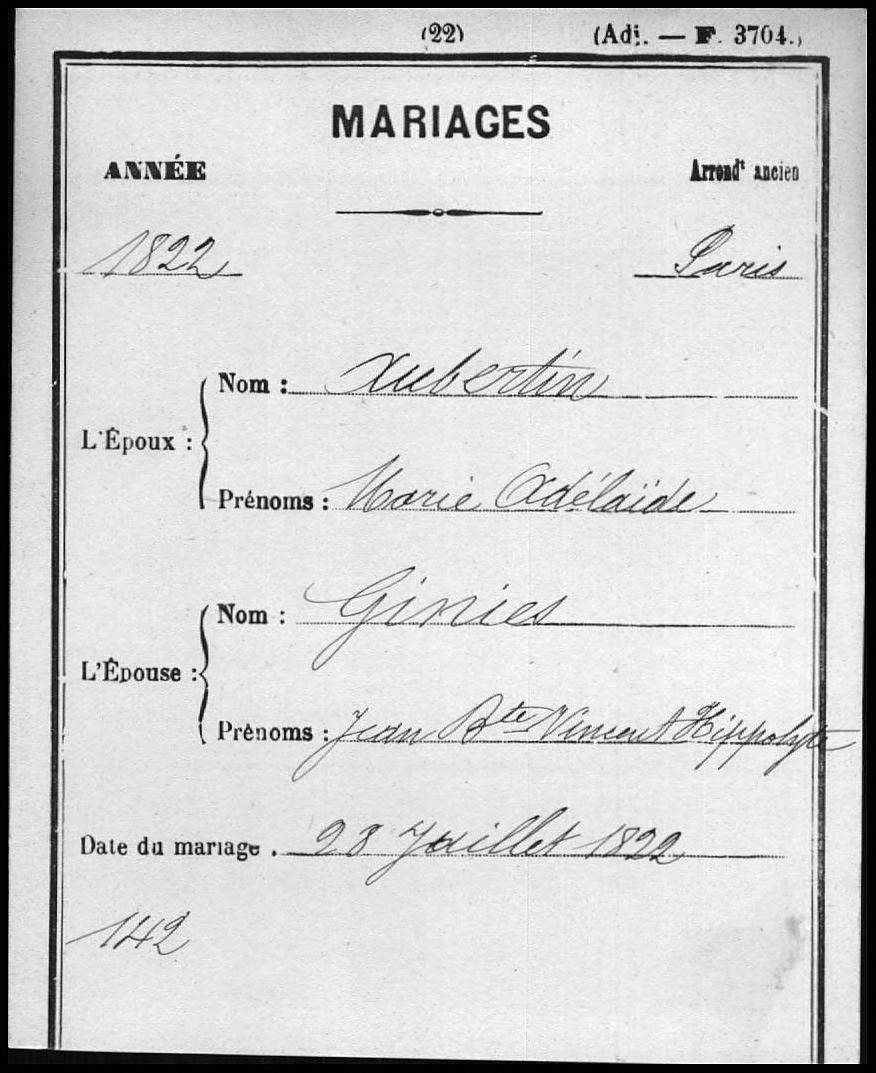 (22) (Adj. — F. 3704.)
MARIAGES
ANNÉE Arrond^t ancien
1822 Paris
L'Époux :
Nom : Aubertin
Prénoms : Marie Adélaïde
L'Épouse :
Nom : Ginies
Prénoms : Jean B^te Vincent Hippolyte
Date du mariage . 23 Juillet 1822
142